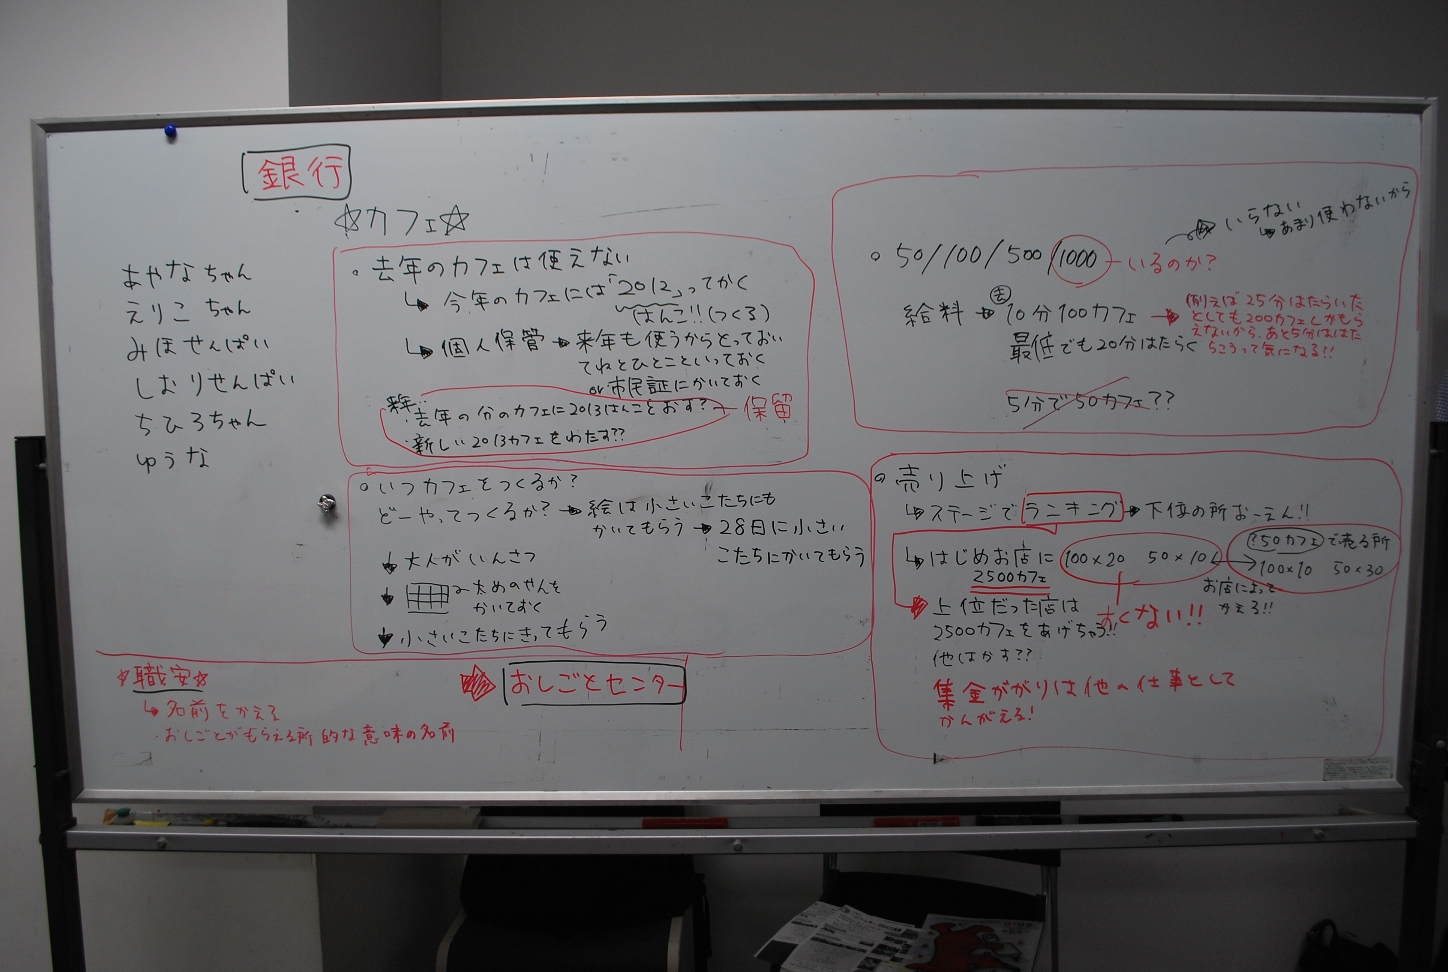 銀行
☆カフェ☆
あやなちゃん
えりこちゃん
みほせんぱい
しおりせんぱい
ちひろちゃん
ゆうな
。去年のカフェは使えない
↳今年のカフェには「2012」ってかく
はんこ!!(つくろ)
↳個人保管→来年も使うからとっておい
てねとひとこといっておく
or市民証にかいておく
来年
去年の分のカフェに2013はんこをおす?
新しい2013カフェをわたす??
保留
。いつカフェをつくるか?
どーやってつくるか?→絵は小さいこたちにも
かいてもらう→28日に小さい
こたちにかいてもらう
↓大人がいんさつ
↓太めのやんを
かいておく
↓小さいこたちにきってもらう
☆職安☆
↳名前をかえる
・おしごとがもらえる所的な意味の名前
→おしごとセンター
。50/100/500/1000
ーいるのか?
→いらない
↳あまり使わないから
給料→10分100カフェ
最低でも20分はたらく
5分で50カフェ??
→例えば25分はたらいた
としても200カフェしかもら
えないから、あと5分ははた
らこうって気になる!!
。売り上げ
↳ステージでランキング→下位の所おーえん!!
↳はじめお店に
2500カフェ
100×20 50×10
すくない!!
?50カフェで売る所
100×10 50×30
お店によって
かえる!!
→上位だった店は
2500カフェをあげちゃう!!
他はかす??
集金ががりは他の仕事として
かんがえる!